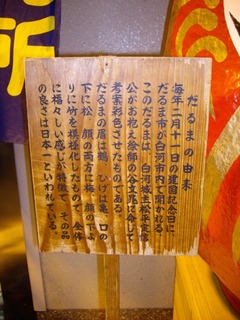 だるまの由来
毎年二月十一日の建国記念日に、
だるま市が白河市内で開かれる。
このだるまは、白河城主松平定信
公がお抱え絵師の谷文晁に命じて
考案彩色させたものである。
だるまの眉は鶴、ひげは亀、口の
下に松、顔の両方に梅、顔の下よ
りに竹を模様化したもので、全体
に福々しい感じが特徴で、その品
の良さは日本一といわれている。